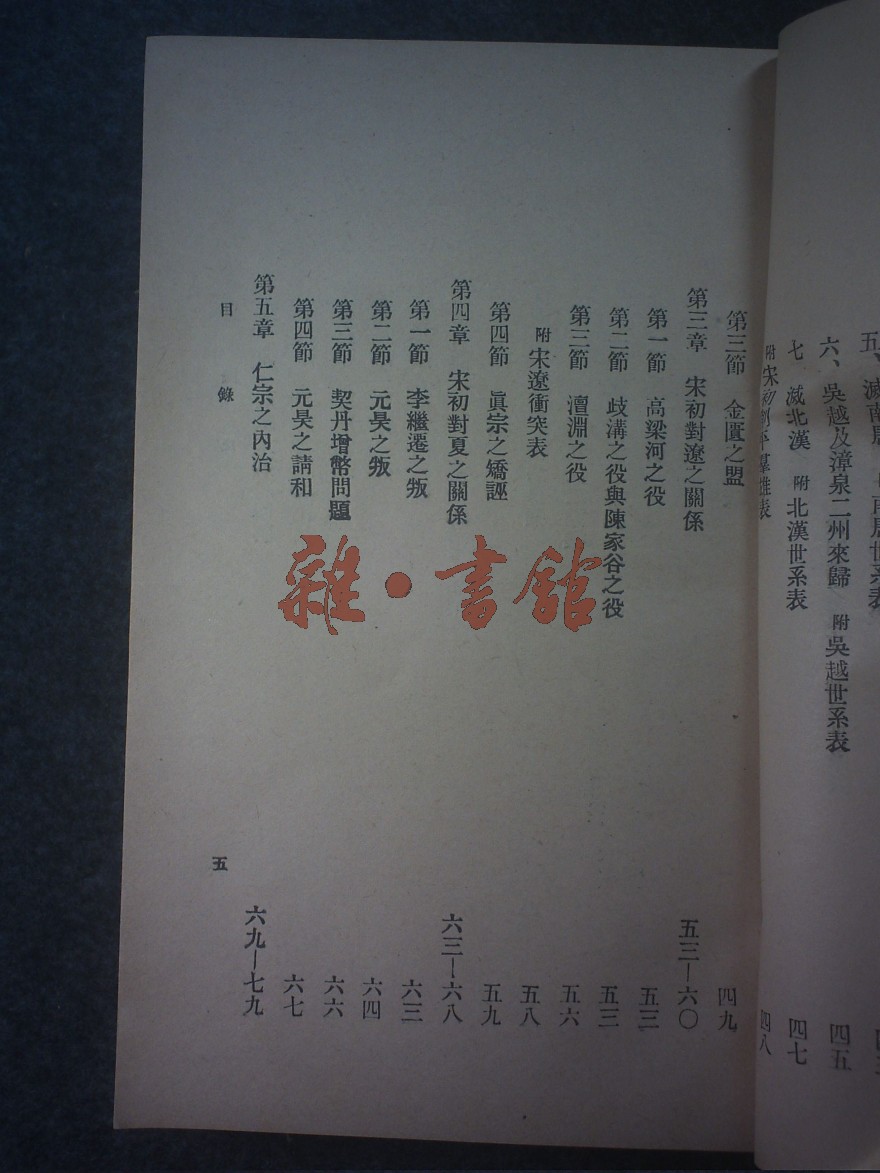 五、滅南唐
六、吳越及漳泉二州來歸 附 吳越世系表 四五
七 滅北漢 附 北漢世系表 四七
附 宋初削平羣雄表 四八
第三節 金匱之盟 四九
第三章 宋初對遼之關係 五三—六〇
第一節 高梁河之役 五三
第二節 歧溝之役與陳家谷之役 五三
第三節 澶淵之役 五六
附 宋遼衝突表 五八
第四節 眞宗之矯誣 五九
第四章 宋初對夏之關係 六三—六八
第一節 李繼遷之叛 六三
第二節 元昊之叛 六四
第三節 契丹增幣問題 六六
第四節 元昊之請和 六七
第五章 仁宗之內治 六九—七九
目錄 五
雜·書館